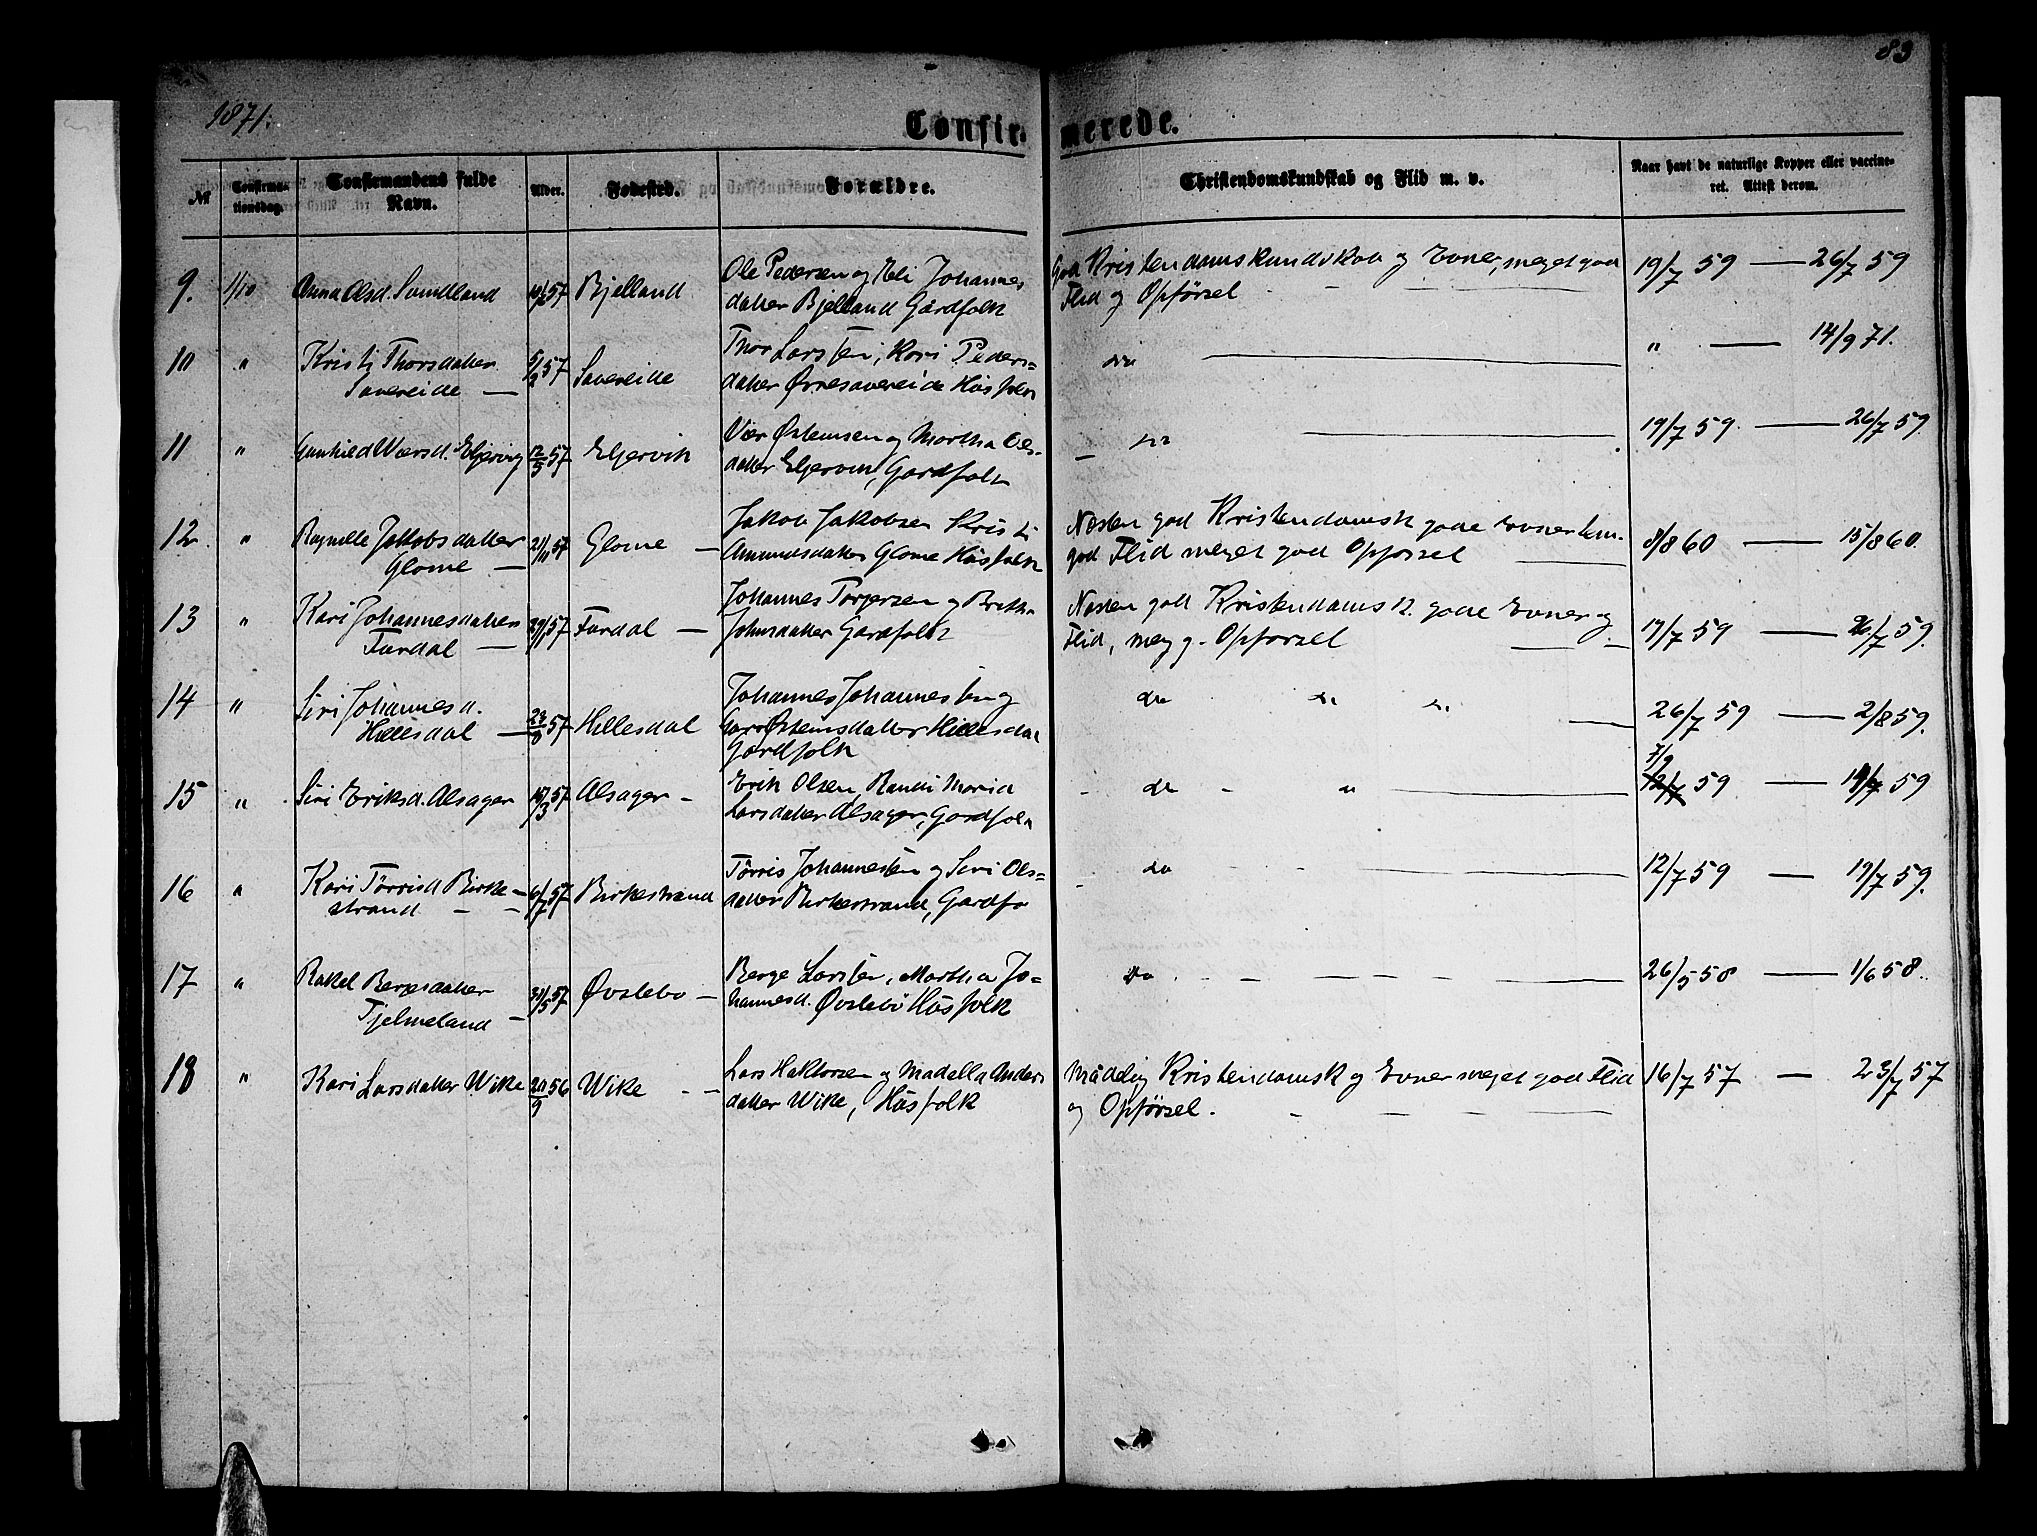 83
1871.
Confirmerede.
№
Confirmationsdag.
Confirmandens fulde Navn.
Alder.
Fødested.
Forældre.
Christendomskundskab og Flid m. v.
Naar havt de naturlige Kopper eller vaccineret. Attest derom.
9. 1/10 Anna Olsd. Sandland 57 Bjelland Ole Pedersen og Eli Johannes God Kristendomskundskab og Evner, meget god 19/7 59 — 26/7 59
datter Bjelland Gårdfolk Flid og Opförsel
10 " Kristi Thorsdatter 5/2 57 Savereide Thor Larsen, Kari Peders= do " — 14/9 71.
Savereide — datter Øvresavereide Husfolk
11 " Gunhild Wiersd. Eljervig 12/5 57 Eljervik Vier Østensen og Martha Ols= do 19/7 59. — 26/7 59.
datter Eljervik, Gardfolk
12 " Ragnelle Jakobsdatter 21/11 57 Glome — Jakob Jakobsen Kristi Næsten god Kristendomsk gode Evner tem. 8/8 60 — 15/8 60.
Glome — Amundsdatter Glome Husfolk god Flid meget god Opförsel
13 " Kari Johannesdatter 29/11 57 Fardal — Johannes Torgersen og Britha Næsten god Kristendomsk. gode Evner og 19/7 59 — 26/7 59.
Fardal — Johnsdatter Gardfolk Flid, meg g. Opförsel
14 " Siri Johannesd. 57 Hillesdal Johannes Johannesen og do do do 26/7 59 — 2/8 59.
Hillesdal — Østensdatter Hillesdal
Gardfolk
15 " Siri Eriksd. Alsager 57 Alsager - Erik Olsen, Randi Maria do " 7/9 59 — 59
Larsdatter Alsager, Gardfolk
16 " Kari Törrisd Birke= 6/7 57 Birkestrand Törris Johannesen og Siri Ols= do 12/7 59 — 19/7 59.
strand datter Birkestrand, Gardfo
17 " Rakel Bergesdatter 31/5 57 Øvslebø — Berge Larsen, Martha Jo= do 26/5 58 — 1/6 58.
Tjelmeland — hannesd. Øvslebö Husfolk
18 " Kari Larsdatter Wike 20/9 56 Wike Lars Haktorsen og Madella Anders Mådelig Kristendomsk og Evner meget god Flid 16/7 57 — 23/7 57
datter Wike, Husfolk og Opförsel.